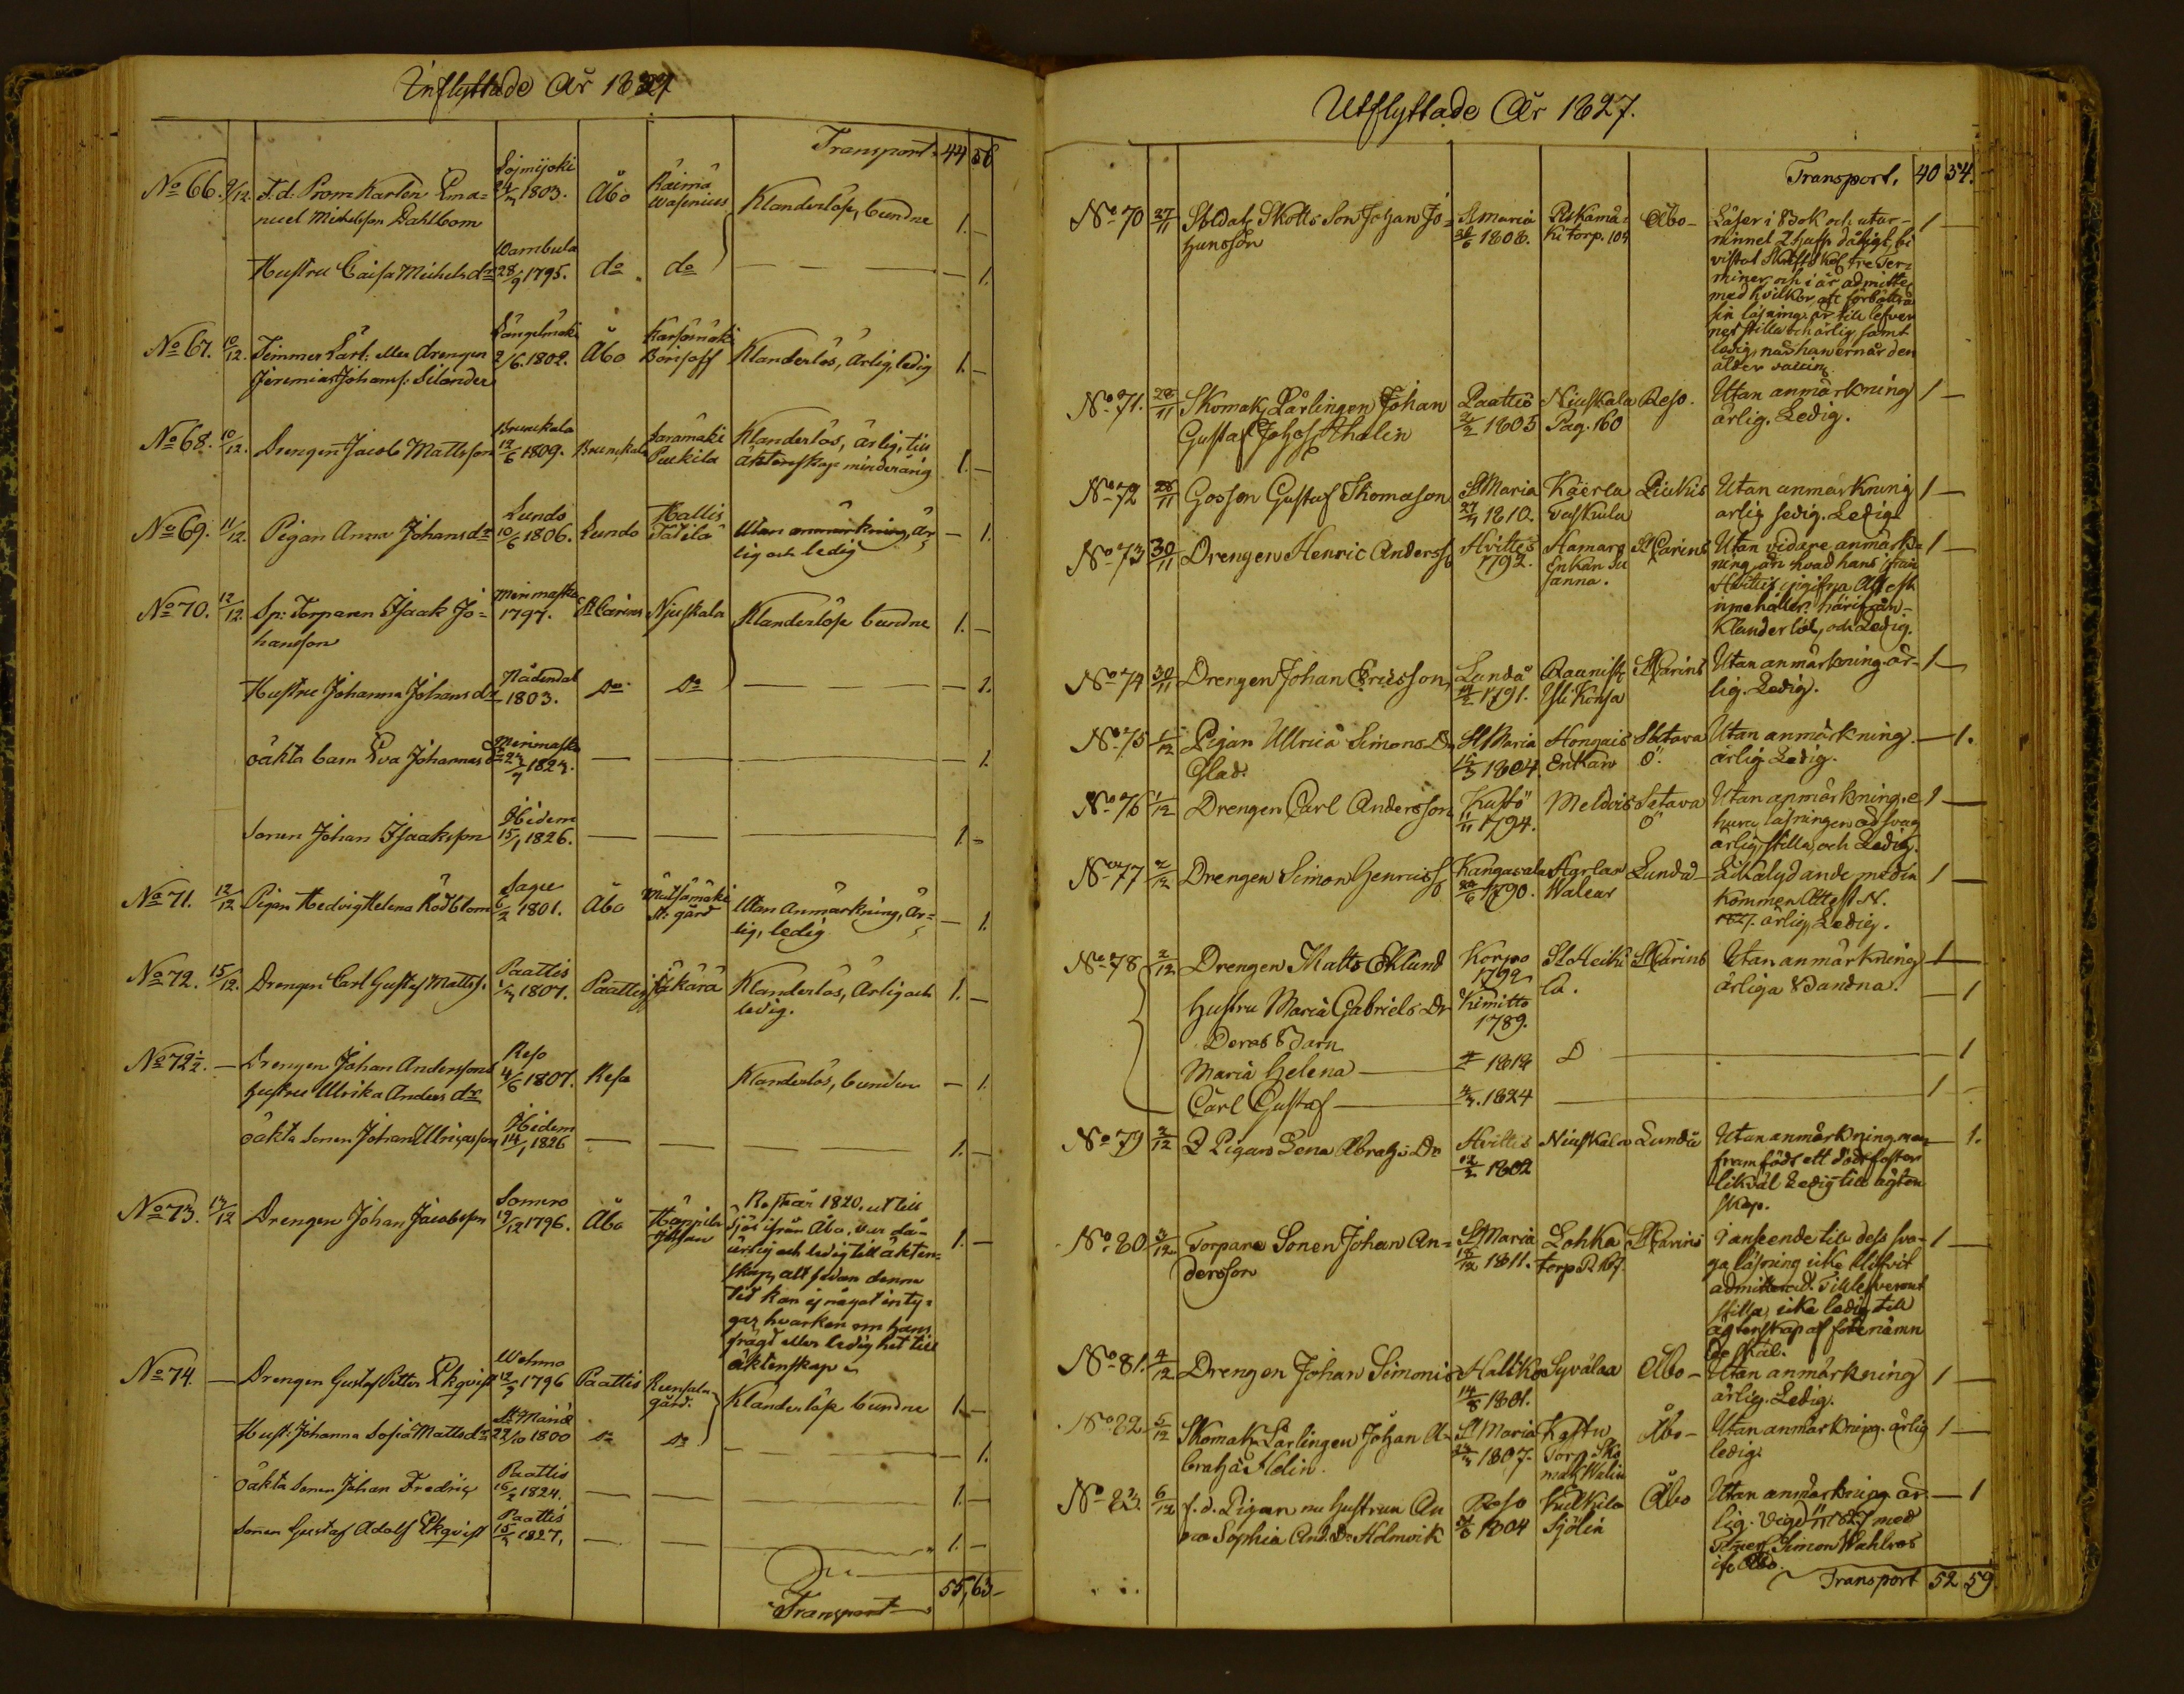 Inflyttade År 1827
Transport. 44 56
No 66. 9/12. F.d. Prom Karlen Ema= Loimijoki 24/7 1803. Åbo Räimä Wasenius Klanderlöse, bundne 1. —
nuel Mickelsson Dahlbom
Hustru Caisa Michelsdr Wambula 28/9 1795. do do — — 1.
No 67. 10/12. Timmer Lärl: eller drengen Längelmäki 2/6. 1802. Åbo Kärsämäki Borisoff Klanderlös, ärlig, ledig 1. —
Jeremias Johans: Silander
No 68. 10/12. Drengen Jacob Mattsson Brunkala 12/6 1809. Brunkala Saramäki Puckila Klanderlös, ärlig, till
äktenskap minderårig 1. —
No 69. 11/12. Pigan Anna Johansdr Lundo 10/6 1806. Lundo Hallis Tätilä Utan anmärkning, är=
lig och ledig — 1.
No 70. 12/12. Sp: Torparen Isaak Jo= Merimasku 1797. St Carins Njuskala Klanderlöse bundne 1. —
hansson
Hustru Johanna Johansdr Nådendal 1803. do do — — 1.
oäkta barn Eva Johannasdr Merimasku 23/7 1823. — — — — 1.
Sonen Johan Isaaksson Ibidem 15/1 1826. — — — 1. —
No 71. 12/12 Pigan Hedvig Helena Rödblom Sagu 6/2 1801. Åbo Mälsämäki St. gård Utan Anmärkning, är=
lig, ledig — 1.
No 72. 15/12. Drengen Carl Gustaf Matts s. Paattis 1/7 1807. Paattis Jäkärä Klanderlös, ärlig och
ledig. 1. —
No 72½. — Drengen Johan Anderssons Reso 4/6 1807. Reso Klanderlös, bunden — 1.
hustru Ulrika Andersdr
oäkta Sonen Johan Ulricasson Ibidem 14/1 1826 — — — 1. —
No 73. 17/12 Drengen Johan Jacobsson Somero 19/12 1796. Åbo Höppila Reste år 1820, ut till
sjös ifrån Åbo, var då
ärlig och ledig till äkten= 1. —
skap, allt sedan denna
tid kan ej något inty=
gas, hvarken om hans
frägd eller ledighet till
äktenskap
No 74. — Drengen Gustaf Petter Ekqvist Wehmo 12/9 1796 Paattis Runsala gård. Klanderlöse bundne 1. —
Hust: Johanna Sofia Mattsdr St Mariæ 22/10 1800 do do — — 1.
oäkta Sonen Johan Fredric Paattis 16/2 1824. — — — 1. —
Sonen Gustaf Adolf Ekqvist Paattis 15/3 1827. — — — 1. —
Transport 55, 63
Utflyttade År 1827.
Transport. 40 54.
No 70 27/11 Soldat Skotts Son Johan Jo= St Maria 26/6 1808. Ruskamä=ki torp. 104 Åbo — Läser i Bok och utur 1 —
hansson
minnet
bi
vistat Skriftskol. tre Ter=
miner, och i år admitte
med hvilkor att förbättra
sin läsning, är till lefver
net stilla och ärlig samt
ledig, när han ernår den
ålder
No 71. 28/11 Skomak. Lärlingen Johan Paattis 2/2 1805 Niuskala Pag. 160 Reso. Utan anmärkning 1 —
Gustaf Johs. Thalin ärlig. Ledig.
No 72 28/11 Gossen Gustaf Thomason St Maria 27/4 1810. Käerla Piikis Utan anmärkning 1 —
ärlig sedig. Ledig.
No 73 30/11 Drengen Henric Anderss. Hvittis 1792. Hamaro Enkan Su sanna. St Carins Utan vidare anmärk= 1 —
ning än hvad hans ifrån
Hvittis gifna Attest
innehåller härifrån
klanderlös, och Ledig.
No 74 30/11 Drengen Johan Ericsson Lundå 1791. Raunist. Yli Konsa St Carins Utan anmärkning är 1 —
lig. Ledig.
No 75 1/12 Pigan Ullrica Simons Dr St Maria 15/3 1804. Hongais Enkan Satava ö. Utan anmärkning. — 1.
Glad. ärlig. Ledig.
No 76 1/12 Drengen Carl Andersson Kustö 11/11 1794. Meldois Satava ö Utan anmärkning, e 1 —
huru läsningen är svag
ärlig, stilla och Ledig.
No 77 2/12 Drengen Simon Henricss. Kangasala 28/6 1790. Harlax Walear Lundå Lika lydande med in 1 —
kommen Attest N.
1827. ärlig, Ledig.
No 78 2/12 Drengen Matts Eklund Korpo 1792 St Heiki la. St Carins Utan anmärkning 1 —
Hustru Maria Gabriels Dr Kimitto 1789. ärliga & bandna. — 1
Deras Barn
Maria Helena — 1818 D — — 1
Carl Gustaf — 4/3. 1824 — 1 —
No 79 2/12 Pigan Lena Abrahs Dr Hvittis 12/2 1802 Niuskala Lundå Utan anmärkning, men — 1.
framfödt ett dödt foster
likväl Ledig till ägten
skap.
No 80 3/12 Torpare Sonen Johan An= St Maria 18/12 1811. Lohka torp St Carins I anseende till dess sva= 1 —
dersson ga läsning icke blifvit
admitterad. Till lefvernet
stilla, icke ledig till
ägtenskap af förenämn
de skäl.
No 81. 4/12 Drengen Johan Simonis Halikko 14/8 1801. Syvälaa Åbo — Utan anmärkning 1 —
ärlig. Ledig.
No 82 5/12 Skomak. Lärlingen Johan A= St Maria 24/3 1807. Kastu Torp Sko mak Walin Åbo — Utan anmärkning. ärlig 1 —
braha Helin. ledig.
No 83. 6/12 f.d. Pigan nu Hustrun An Reso 1804 Kulkila Sjölin Åbo Utan anmärkning är — 1
na Sophia And. Dr Holmvik lig. Vigd 1827 med
Simon Wahlros
i Åbo.
Transport 52 59